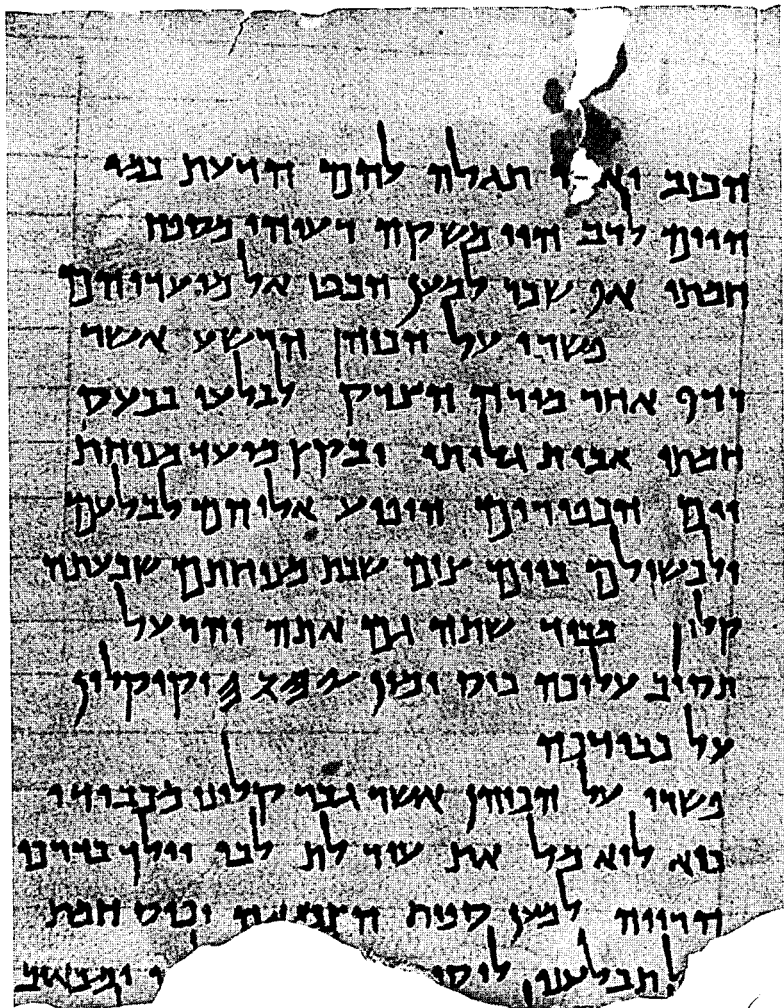 הכזב תגלה להם הדעת כמי
היים לרב הוי משקה רעיהו מספח
חמתו אף שכר למען הבט אל מועדיהם
פשרו על הכוהן הרשע אשר
רדף אחר מורה הצדק לבלעו בכעס
חמתו אבית גלותו ובקץ מועד מנוחת
יום הכפורים הופיע אליהם לבלעם
ולכשילם ביום צום שבת מנוחתם שבעתה
קלון מכבוד שתה גם אתה והרעל
תסוב עליכה כוס ימין 𐤉𐤄𐤅𐤄 וקיקלון
על כבודכה
פשרו על הכוהן אשר גבר קלונו מכבודו
כיא לוא מל את עור לת לבו וילך בדרכי
הרויה למען ספות הצמאה וכוס חמת
תבלענו ומכאוב